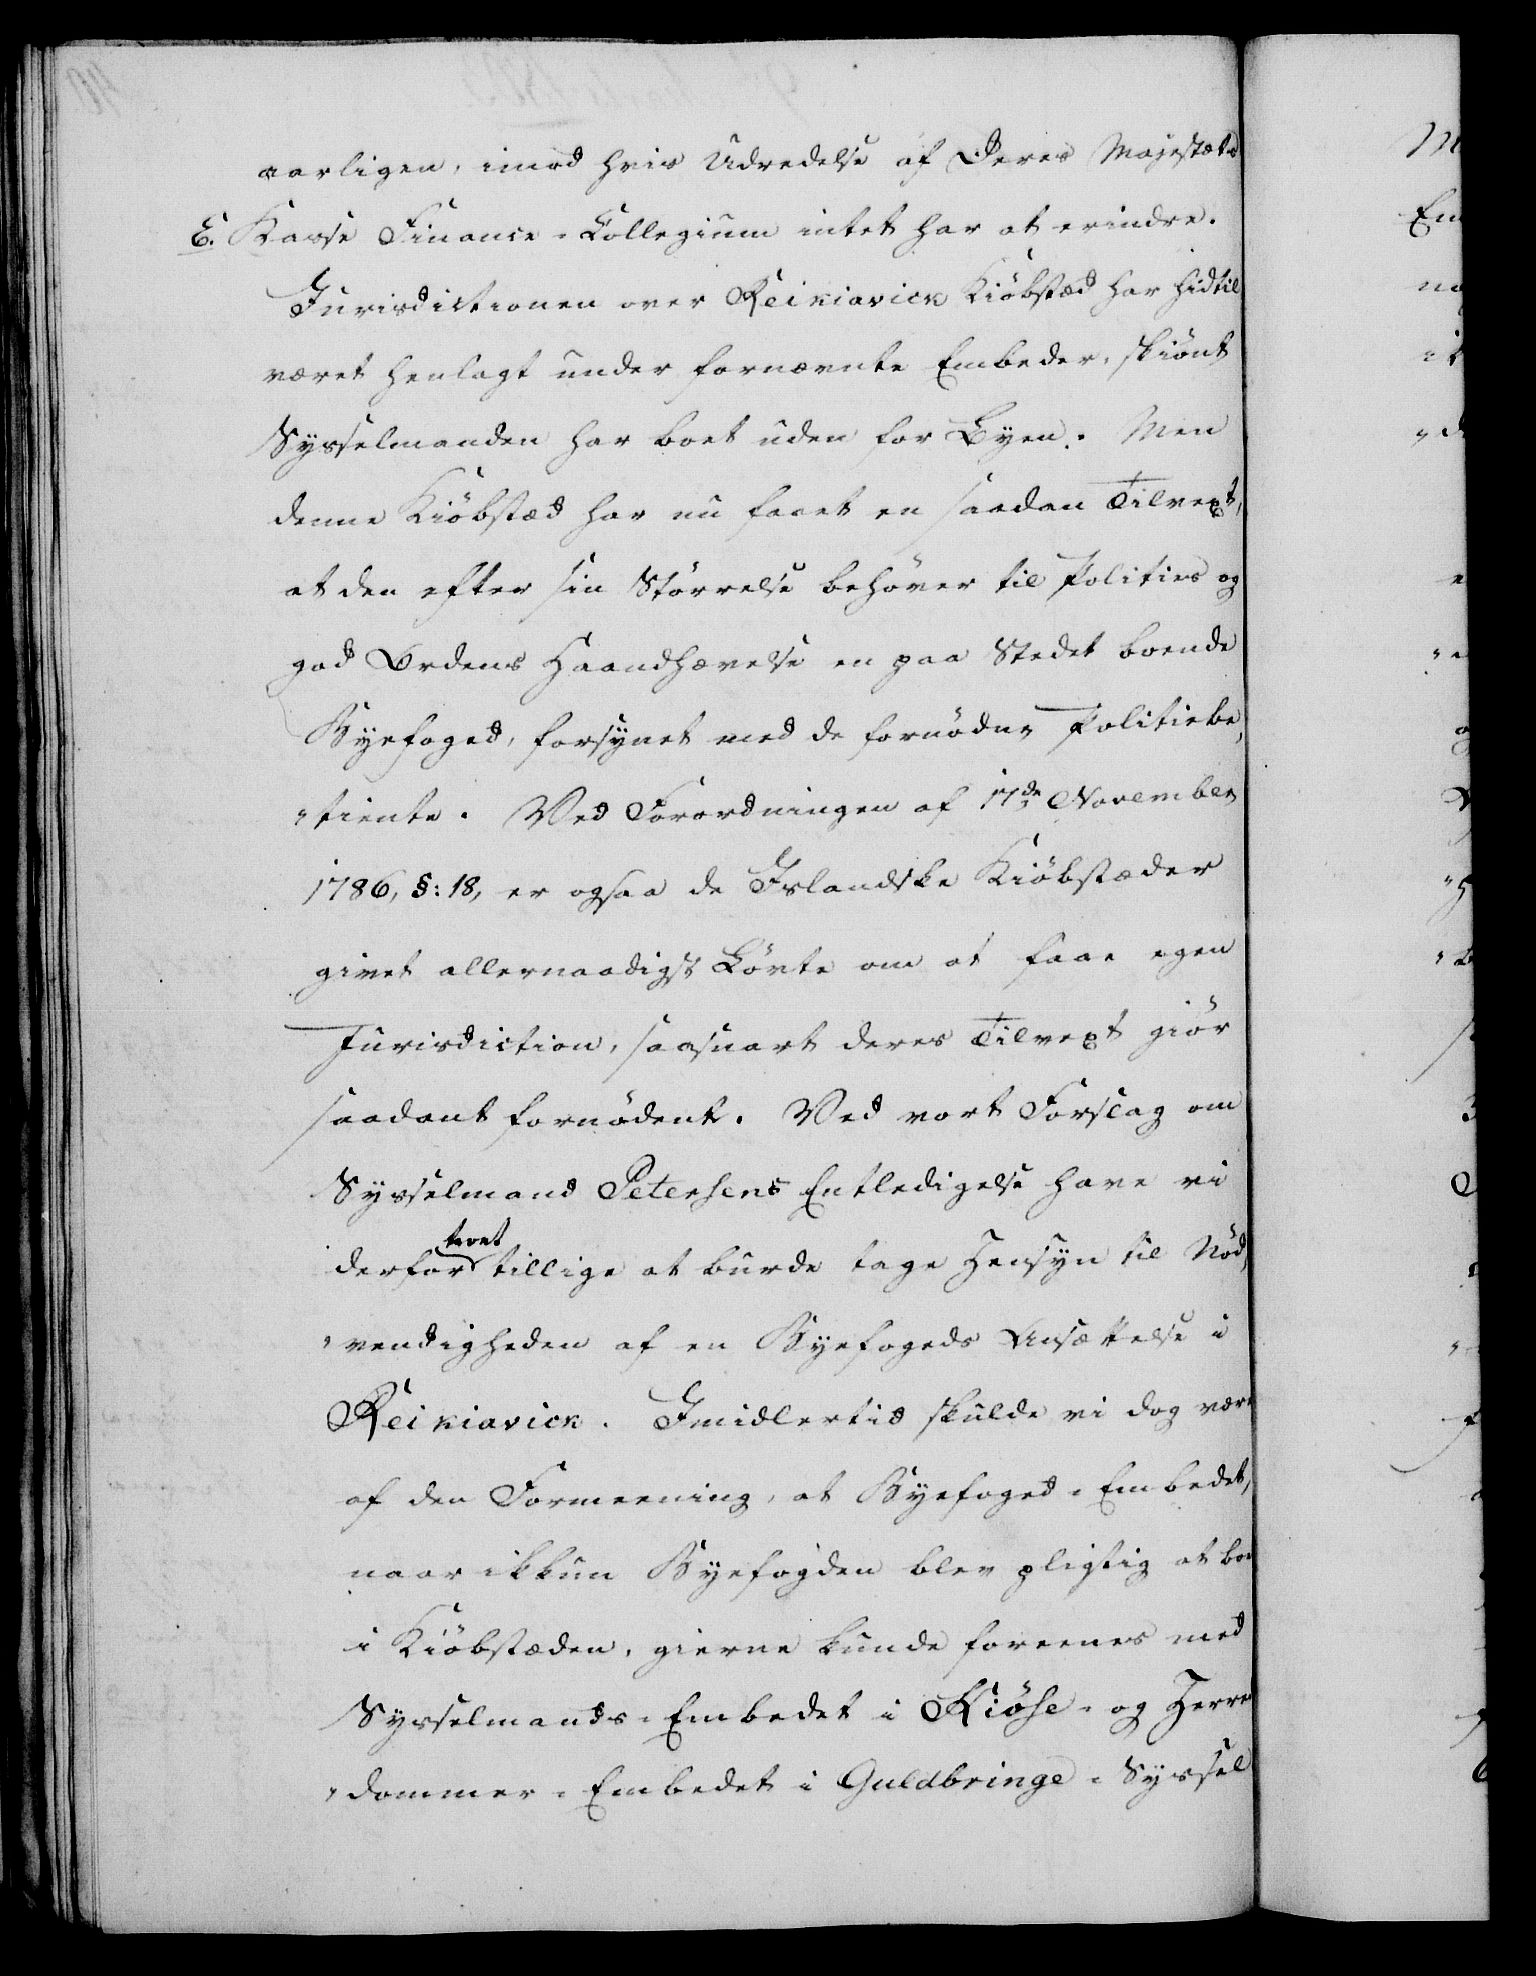 aarligen, imod hvis Udredelse af Deres Majestæts
E. Kasse Finance-Collegium intet har at erindre.
Jurisdictionen over Reikiavick Kiöbstæd har hidtil
været henlagt under fornævnte Embeder, skiönt
Sysselmanden har boet uden for Byen. Men
denne Kiöbstæd har nu faaet en saadan Tilvext,
at den efter sin Störrelse behöver til Polities og
god Ordens Haandhævelse en paa Stedet boende
Byefoged, forsynet med de fornödne Politiebe,
„tiente. Ved Forordningen af 17de November
1786, §: 18, er ogsaa de Islandske Kiöbstæder
givet allernaadigst Lövte om at faae egen
Jurisdiction, saasnart deres Tilvext giör
saadant fornödent. Ved vort Forslag om
Sysselmand Petersens Entledigelse have vi
troet
derfor tillige at burde tage Hensyn til Nöd,
„vendigheden af en Byefogeds Ansættelse i
Reikiavick. Imidlertid skulde vi dog være
af den Formeening, at Byefoged-Embedet,
naar ikkun Byefogden blev pligtig at boe
i Kiöbstæden, gierne kunde foreenes med
Sysselmands-Embedet i Kiöse- og Herre
„dommer-Embedet i Guldbringe-Syssel